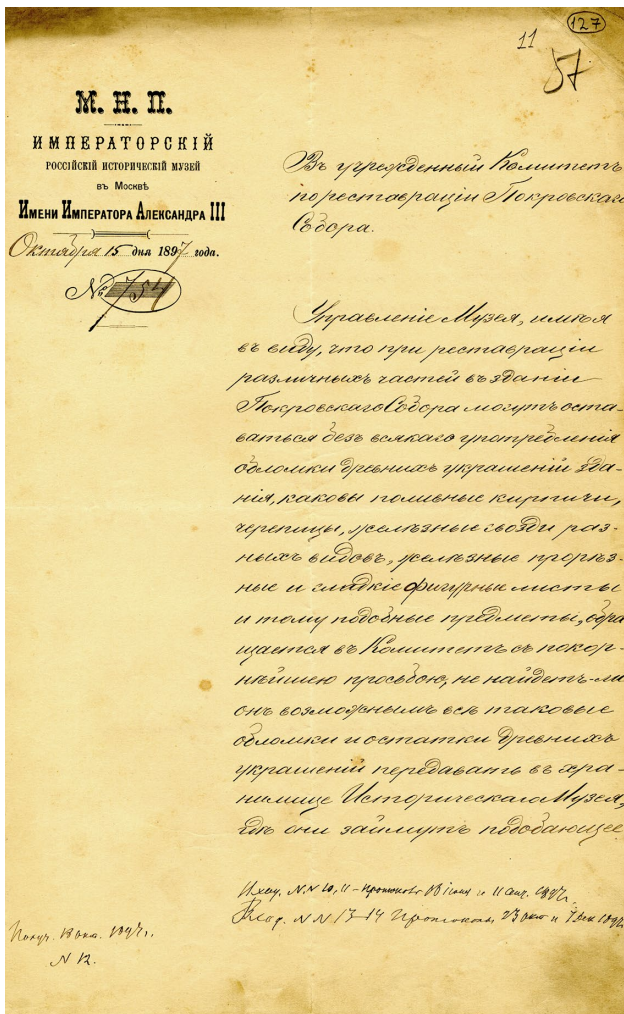 127
11
57
М. Н. П.
ИМПЕРАТОРСКІЙ
РОССІЙСКІЙ ИСТОРИЧЕСКІЙ МУЗЕЙ
въ Москвѣ
Имени Императора Александра III
Октября 15 дня 1897 года.
№ 754
Въ учрежденный Комитетъ
по реставраціи Покровскаго
Собора.
Управленіе Музея, имѣя
въ виду, что при реставраціи
различныхъ частей въ зданіи
Покровскаго Собора могутъ оста-
ваться безъ всякаго употребленія
обломки древнихъ украшеній зда-
нія, каковы поливные кирпичи,
черепицы, желѣзные гвозди раз-
ныхъ видовъ, желѣзные прорѣз-
ные и гладкіе фигурные листы
и тому подобные предметы, обра
щается въ Комитетъ съ покор-
нѣйшею просьбою, не найдетъ-ли
онъ возможнымъ всѣ таковые
обломки и остатки древнихъ
украшеній передавать въ хра-
нилище Историческаго Музея,
гдѣ они займутъ подобающее
Исход. N.N 10, 11 - 1897 г.
N N 13-14 23 окт и 1897
Получ. 18 окт. 1897 г.
N 12.